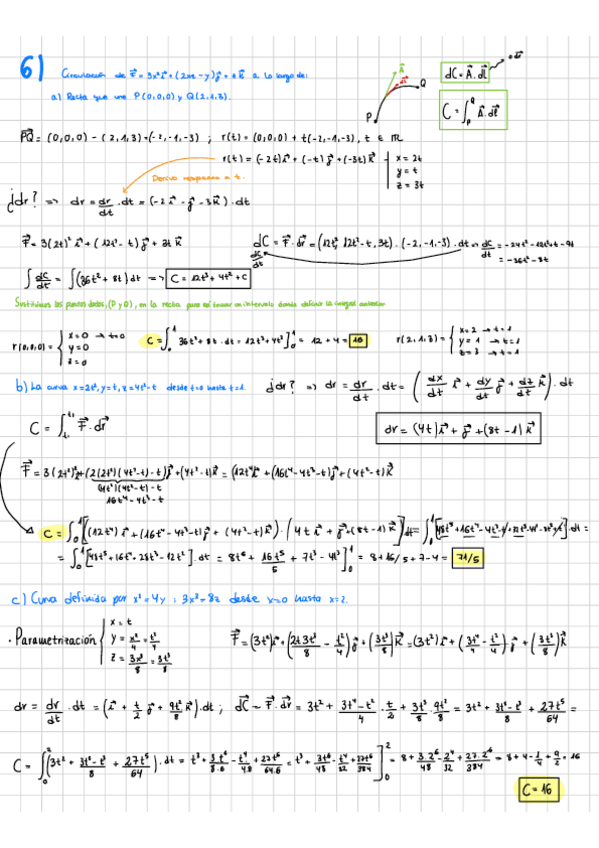 6) Circulación de F⃗ = 3x² i⃗ + (2xz − y) j⃗ + z k⃗ a lo largo de:
a) Recta que une P(0,0,0) y Q(2,1,3).
A⃗
dl⃗
Q
P
dC = A⃗ · dl⃗
dr⃗
C = ∫_P^Q A⃗ · dl⃗
PQ⃗ = (0,0,0) − (2,1,3) = (−2,−1,−3) ; r(t) = (0,0,0) + t(−2,−1,−3), t ∈ ℝ
r(t) = (−2t) i⃗ + (−t) j⃗ + (−3t) k⃗ { x = 2t
y = t
z = 3t
Derivo respecto a t.
¿dr? => dr = dr/dt · dt = (−2 i⃗ − j⃗ − 3k⃗) · dt
F⃗ = 3(2t)² i⃗ + (12t² − t) j⃗ + 3t k⃗
dC = F⃗ · dr⃗ = (12t², 12t² − t, 3t) · (−2, −1, −3) dt => dC/dt = −24t² − 12t² + t − 9t
= −36t² − 8t
dC/dt
∫ dC/dt = ∫(36t² + 8t) dt => C = 12t³ + 4t² + C
Sustituimos los puntos dados, (P y Q), en la recta para un intervalo donde definir la integral anterior
r(0,0,0) = { x = 0 → t = 0
y = 0
z = 0
C = ∫_0^1 36t² + 8t · dt = 12t³ + 4t²]_0^1 = 12 + 4 = 16
r(2,1,3) = { x = 2 → t = 1
y = 1 → t = 1
z = 3 → t = 1
b) La curva x = 2t², y = t, z = 4t² − t desde t = 0 hasta t = 1.
¿dr? => dr = dr/dt · dt = (dx/dt i⃗ + dy/dt j⃗ + dz/dt k⃗) · dt
C = ∫_{t₀}^{t₁} F⃗ · dr⃗
dr = (4t) i⃗ + j⃗ + (8t − 1) k⃗
F⃗ = 3(2t²)² i + (2(2t²)(4t² − t) − t) j⃗ + (4t² − t) k⃗ = (12t⁴) i⃗ + (16t⁴ − 4t³ − t) j⃗ + (4t² − t) k⃗
(4t²)(4t² − t) − t
16t⁴ − 4t³ − t
C = ∫_0^1 [(12t⁴) i⃗ + (16t⁴ − 4t³ − t) j⃗ + (4t² − t) k⃗] · (4t i⃗ + j⃗ + (8t − 1) k⃗) dt = ∫_0^1 [48t⁵ + 16t⁴ − 4t³ − t + 32t³ − 4t² − 8t² + t] dt =
= ∫_0^1 [48t⁵ + 16t⁴ + 28t³ − 12t²] · dt = 8t⁶ + 16t⁵/5 + 7t⁴ − 4t³]_0^1 = 8 + 16/5 + 7 − 4 = 71/5
c) Curva definida por x² = 4y ; 3x³ = 8z desde x = 0 hasta x = 2.
· Parametrización { x = t
y = x²/4 = t²/4
z = 3x³/8 = 3t³/8
F⃗ = (3t²) i⃗ + (2t 3t³/8 − t²/4) j⃗ + (3t³/8) k⃗ = (3t²) i + (3t⁴/4 − t²/4) · j⃗ + (3t³/8) k⃗
dr = dr/dt · dt = (i⃗ + t/2 j⃗ + 9t²/8 k⃗) · dt ; dC⃗ = F⃗ · dr⃗ = 3t² + 3t⁴ − t²/4 · t/2 + 3t³/8 · 9t²/8 = 3t² + 3t⁵ − t³/8 + 27t⁵/64 =
C = ∫_0^2 (3t² + 3t⁵ − t³/8 + 27t⁵/64) · dt = t³ + 3t⁶/8·6 − t⁴/4·8 + 27t⁶/64·6 = t³ + 3t⁶/48 − t⁴/32 + 27t⁶/384]_0^2 = 8 + 3·2⁶/48 − 2⁴/32 + 27·2⁶/384 = 8 + 4 − 1/2 + 9/2 = 16
C = 16